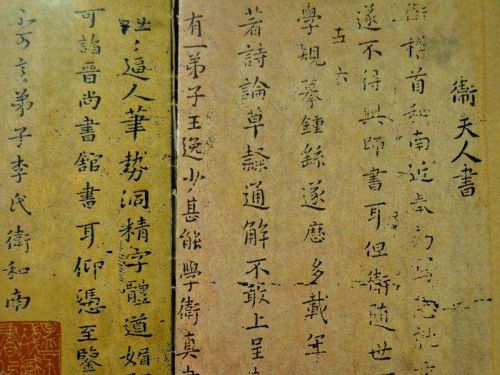 衛夫人書
衛稽首和南近奉勅寫急就
遂不得與師書耳但衛隨世
學規摹鍾繇遂歷多載年
著詩論草隸通解不敢上呈
有一弟子王逸少甚能學衛真
逼人筆勢洞精字體遒媚
可詣晉尚書館書耳仰憑至鑒
不可言弟子李氏衛和南